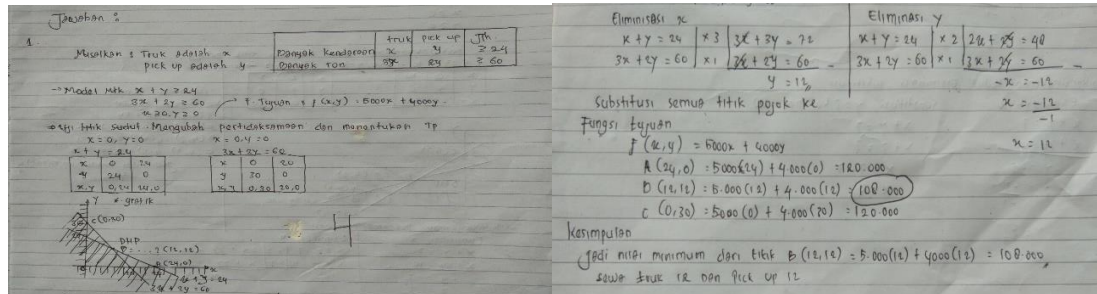 Jawaban :
1.
Misalkan : Truk adalah x
pick up adalah y
truk pick up Jlh
Banyak Kendaraan x y ≥ 24
Banyak ton 3x 2y ≥ 60
→ Model Mtk x + y ≥ 24
3x + 2y ≥ 60
x ≥ 0, y ≥ 0
f. Tujuan : f(x,y) = 5000x + 4000y
Uji titik sudut Mengubah pertidaksamaan dan menentukan Tp
x = 0, y = 0
x + y = 24
x 0 24
y 24 0
x,y 0,24 24,0
x = 0, y = 0
3x + 2y = 60
x 0 20
y 30 0
x,y 0,30 20,0
* grafik
Y
C (0,30)
DHP
(12,12)
(24,0)
x
x + y = 24
3x + 2y = 60
4
Eliminisasi x
x + y = 24 | x 3 | 3x + 3y = 72
3x + 2y = 60 | x 1 | 3x + 2y = 60 -
y = 12
Eliminasi y
x + y = 24 | x 2 | 2x + 2y = 48
3x + 2y = 60 | x 1 | 3x + 2y = 60 -
-x = -12
x = -12
-1
x = 12
Substitusi semua titik pojok ke
Fungsi tujuan
f (x,y) = 5000x + 4000y
A (24,0) = 5000(24) + 4.000(0) = 120.000
B (12,12) = 5.000 (12) + 4.000 (12) = 108.000
C (0,30) = 5000 (0) + 4.000 (30) = 120.000
Kesimpulan
Jadi nilai minimum dari titik B (12,12) = 5.000(12) + 4000 (12) = 108.000,
sewa truk 12 dan Pick up 12